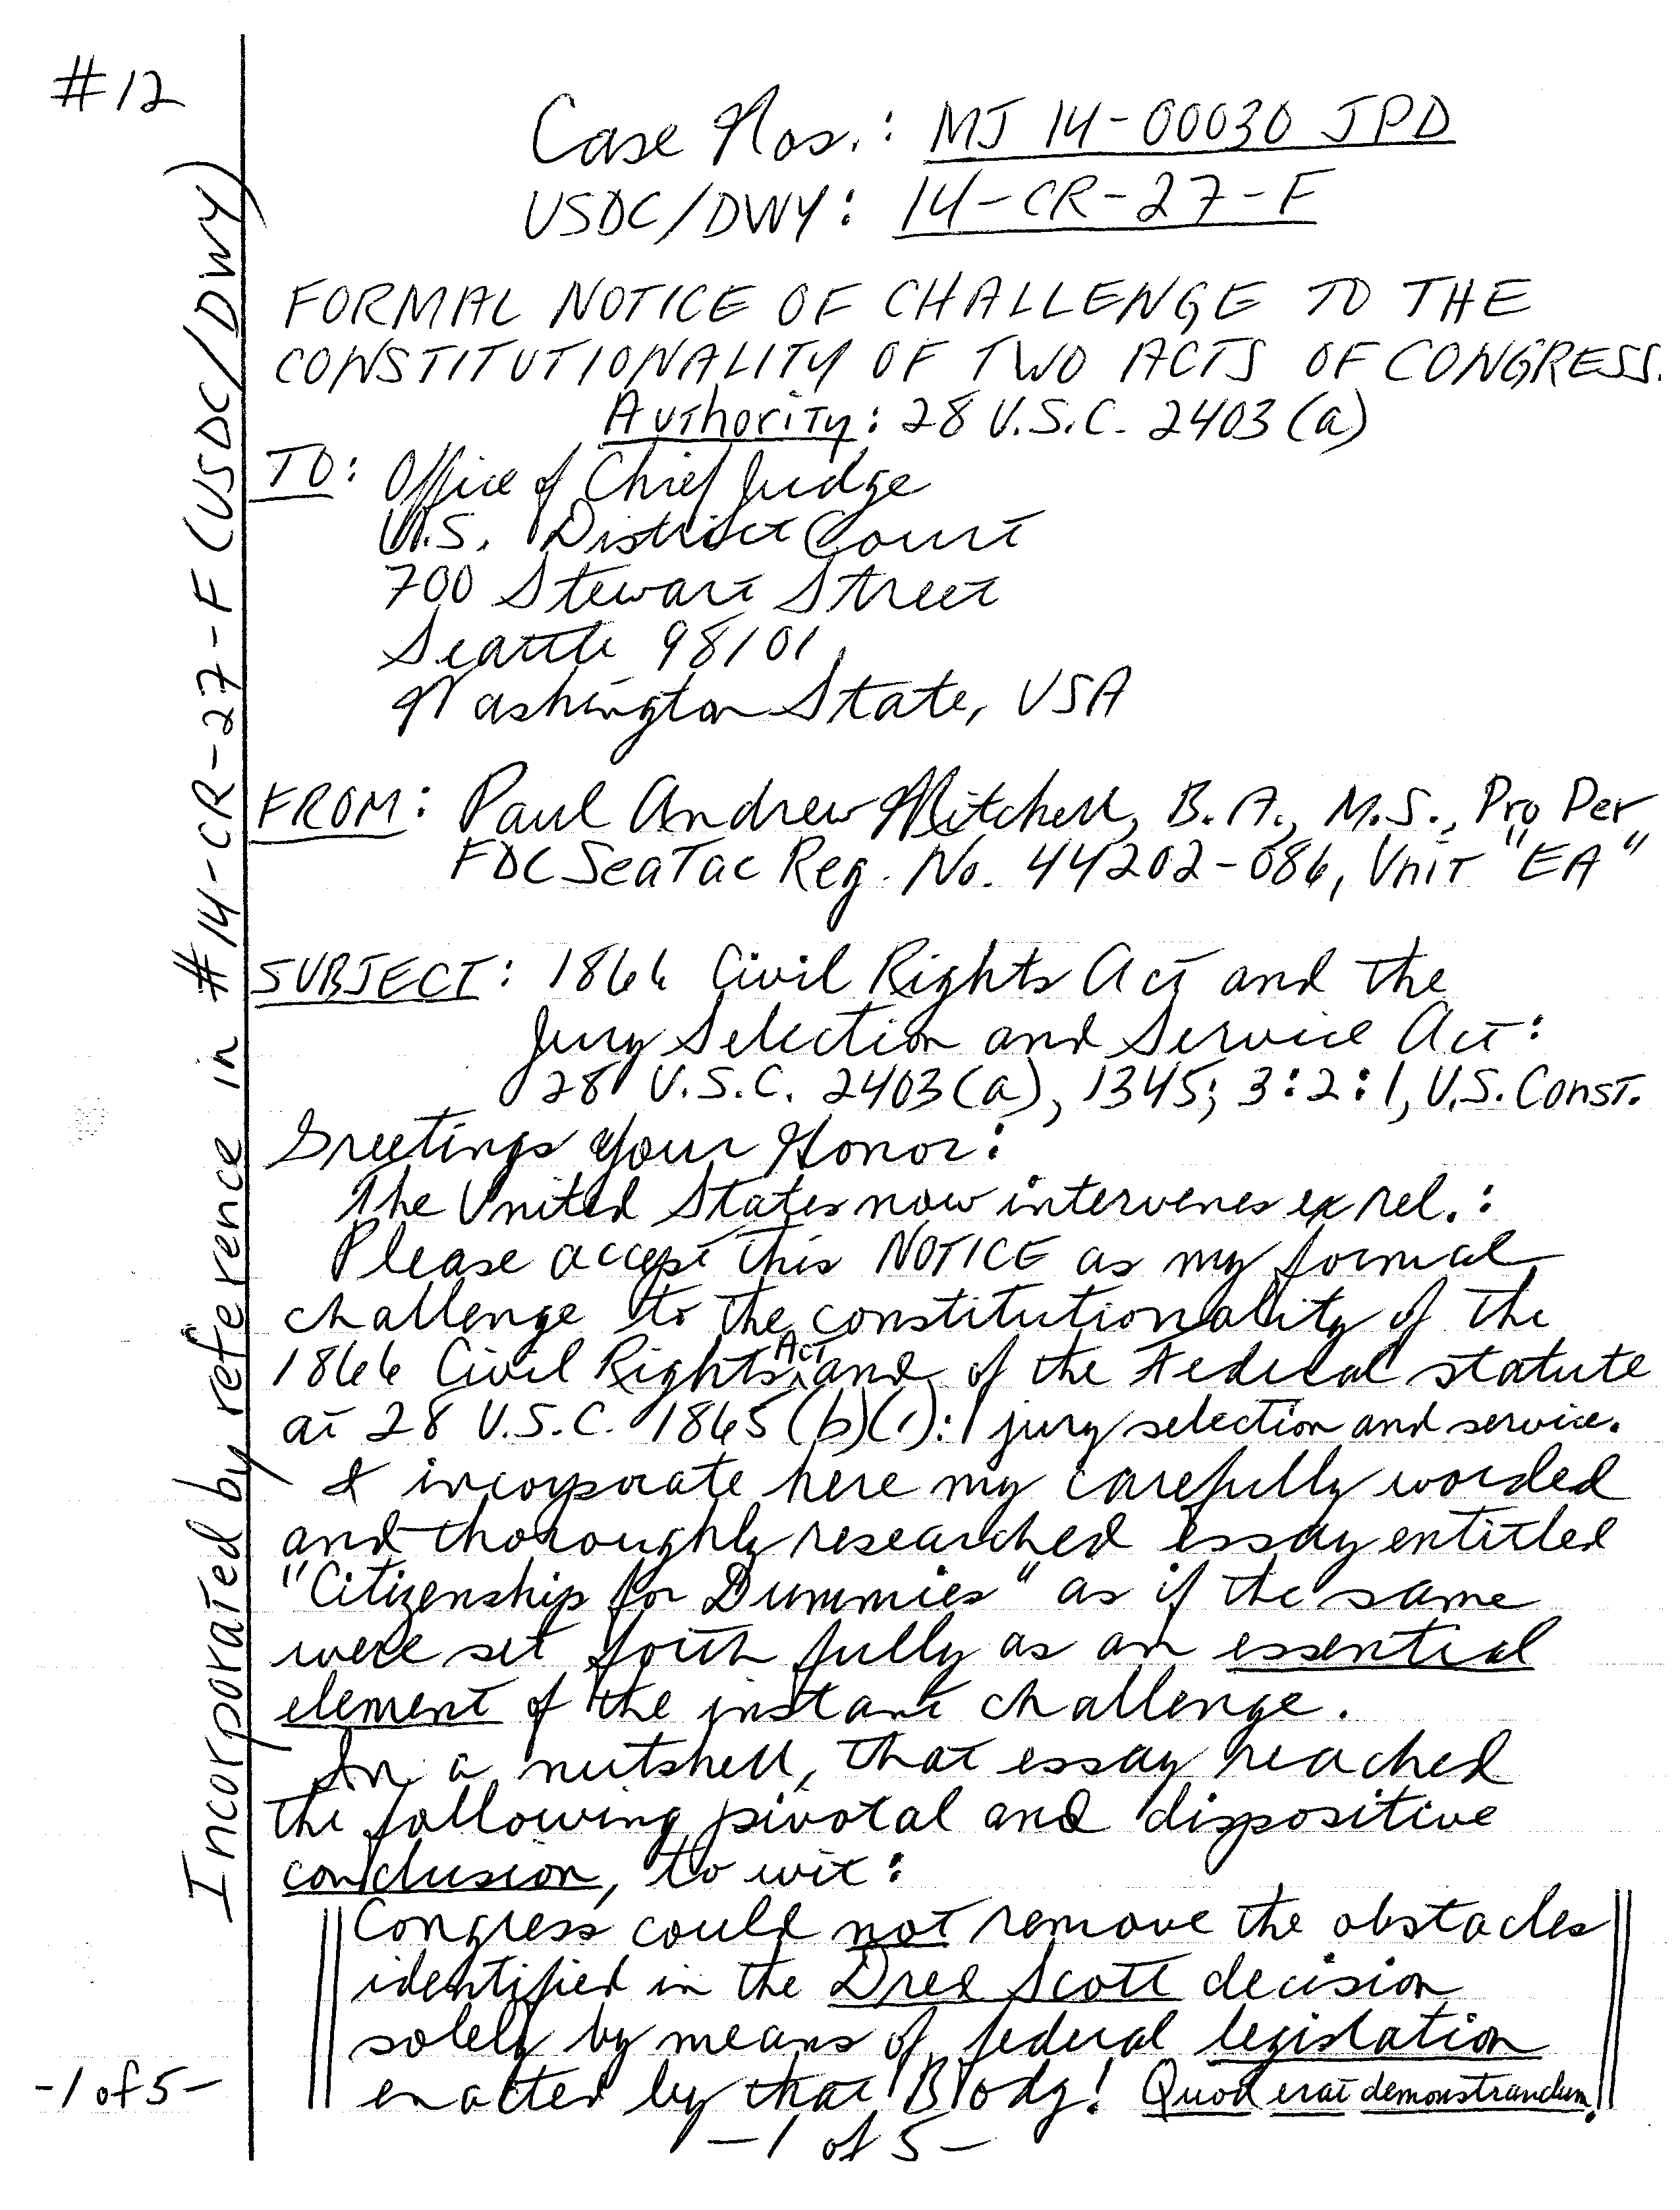 #12
Case Nos.: MJ 14-00030 JPD
USDC/DWY: 14-CR-27-F
FORMAL NOTICE OF CHALLENGE TO THE
CONSTITUTIONALITY OF TWO ACTS OF CONGRESS.
Authority: 28 U.S.C. 2403(a)
TO: Office of Chief Judge
U.S. District Court
700 Stewart Street
Seattle 98101
Washington State, USA
FROM: Paul Andrew Mitchell, B.A., M.S., Pro Per
FDC SeaTac Reg. No. 44202-086, Unit "EA"
SUBJECT: 1866 Civil Rights Act and the
Jury Selection and Service Act:
28 U.S.C. 2403(a), 1345; 3:2:1, U.S. Const.
Greetings Your Honor:
The United States now intervenes ex rel.:
Please accept this NOTICE as my formal
challenge to the constitutionality of the
1866 Civil Rights Act and of the Federal statute
at 28 U.S.C. 1865(b)(1): jury selection and service.
I incorporate here my carefully worded
and thoroughly researched essay entitled
"Citizenship for Dummies" as if the same
were set forth fully as an essential
element of the instant challenge.
In a nutshell, that essay reached
the following pivotal and dispositive
conclusion, to wit:
Congress could not remove the obstacles
identified in the Dred Scott decision
solely by means of federal legislation
enacted by that Body! Quod erat demonstrandum.
-1 of 5-
-1 of 5-
Incorporated by reference in #14-CR-27-F (USDC/DWY)